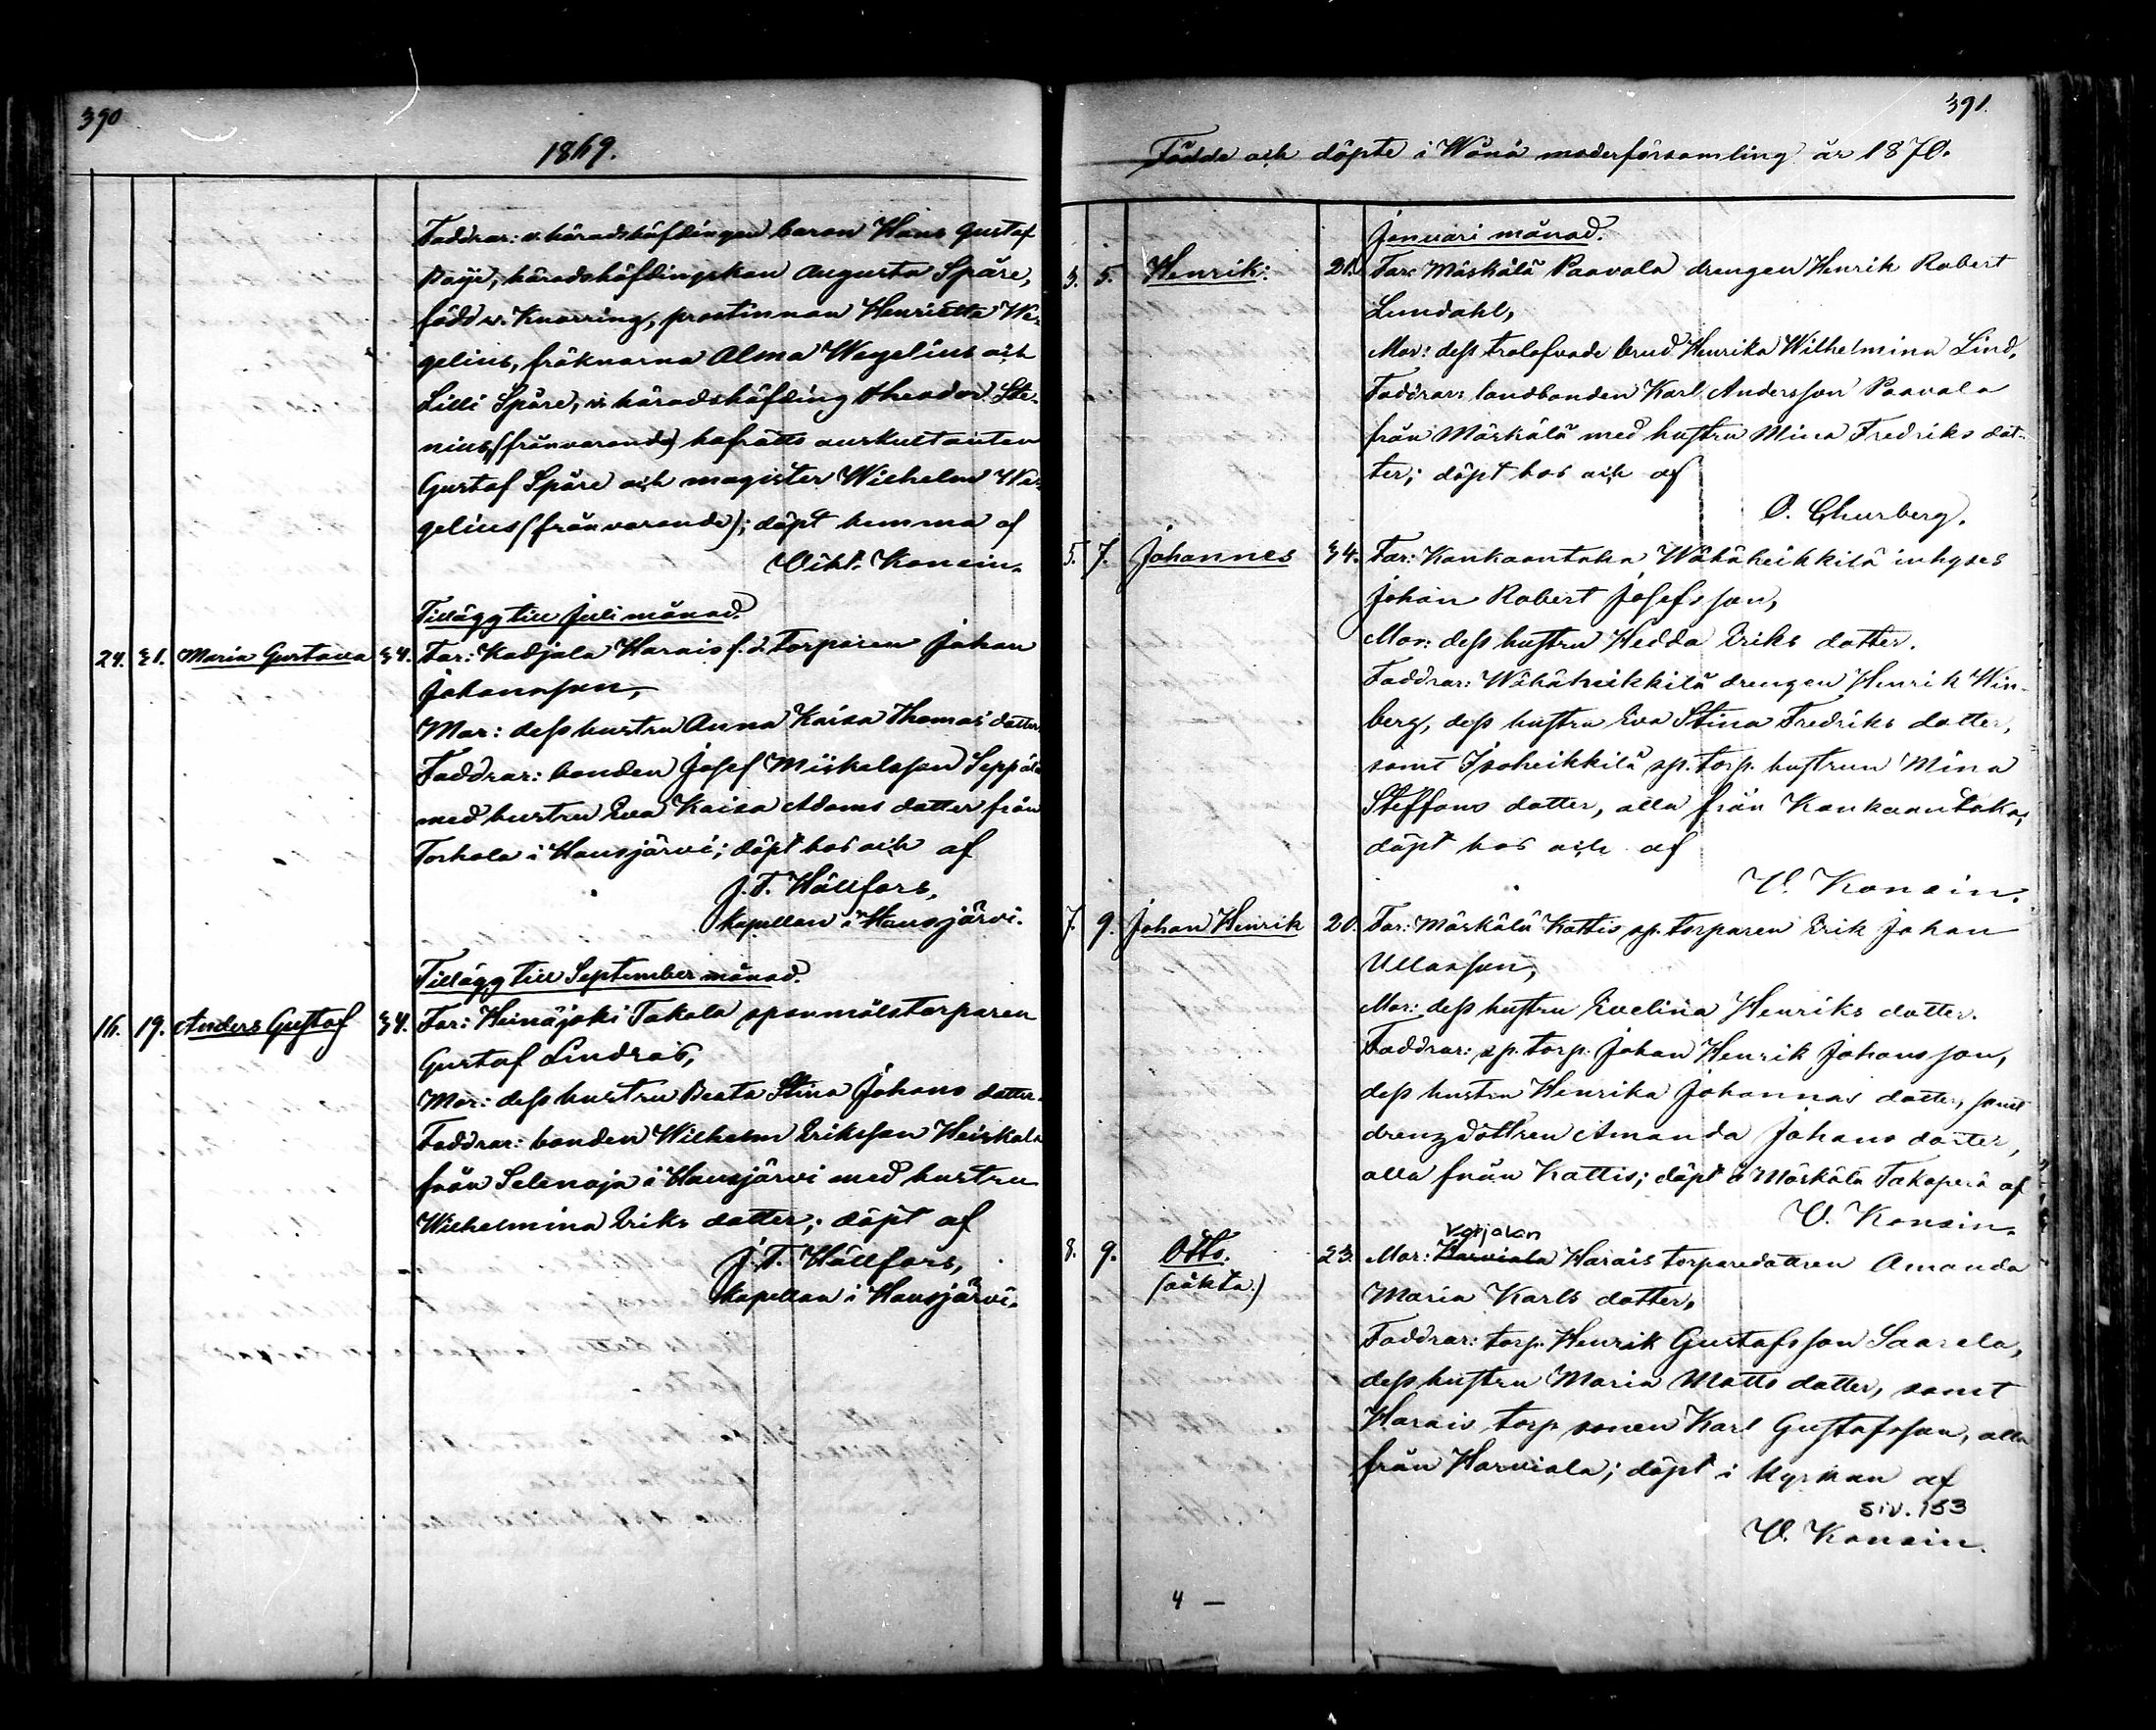 390
1869.
Faddrar: v. häradshöfdingen baron Hans Gustaf
Boije, häradshöfdingskan Augusta Spåre,
född v. Knorring, prostinnan Henrietta We-
gelius, fröknarna Alma Wegelius och
Lilli Spåre, v. häradshöfding Theodor Ste-
nius, (frånvarande) hofrätts auskultanten
Gustaf Spåre och magister Wilhelm We-
gelius (frånvarande); döpt hemma af
Vikt. Konsin.
Tillägg till Juli månad.
24. 31. Maria Gustava 34. Far: Kadjala Harais f. d. torparen Johan
Johansson,
Mor: dess hustru Anna Kaisa Thomas dotter.
Faddrar: bonden Josef Mickelsson Seppälä
med hustru Eva Kaisa Adams dotter från
Torhola i Hausjärvi; döpt hos och af
J. T. Hällfors,
kapellan i Hausjärvi.
Tillägg till September månad.
16. 19. Anders Gustaf 34. Far: Heinäjoki Takala spanmålstorparen
Gustaf Lindroos,
Mor: dess hustru Beata Stina Johans dotter.
Faddrar: bonden Wilhelm Eriksson Heiskala
från Selenoja i Hausjärvi med hustru
Wilhelmina Eriks dotter; döpt af
J. T. Hällfors,
kapellan i Hausjärvi.
391.
Födde och döpte i Wånå moderförsamling år 1870.
Januari månad.
3. 5. Henrik: 21. Far: Mäskälä Paavola drengen Henrik Robert
Lundahl,
Mor: dess trolofvade brud Henrika Wilhelmina Lind,
Faddrar: landbonden Karl Andersson Paavola
från Mäskälä med hustru Mina Fredriks dot-
ter; döpt hos och af
O. Churberg.
5. 7. Johannes 34. Far: Kankaantaka Wähäheikkilä inhyses
Johan Robert Josefsson,
Mor: dess hustru Hedda Eriks dotter.
Faddrar: Wähäheikkilä drengen Henrik Win-
berg, dess hustru Eva Stina Fredriks dotter,
samt Isoheikkilä sp. torp. hustrun Mina
Steffans dotter, alla från Kankaantaka;
döpt hos och af
V. Konsin.
7. 9. Johan Henrik 20. Far: Mäskälä Kattis sp. torparen Erik Johan
Ullasson,
Mor: dess hustru Evelina Henriks dotter.
Faddrar: sp. torp. Johan Henrik Johansson,
dess hustru Henrika Johannas dotter, samt
drengdottren Amanda Johans dotter,
alla från Kattis; döpt å Mäskälä Takaperä af
V. Konsin.
Katjalan
8. 9. Otto. 23. Mor: Harviala Harais torparedottren Amanda
(oäkta.) Maria Karls dotter,
Faddrar: torp. Henrik Gustafsson Saarela,
dess hustru Maria Matts dotter, samt
Harais torp. sonen Karl Gustafsson, alla
från Harviala; döpt i kyrkan af
siv. 153
V. Konsin.
4 —